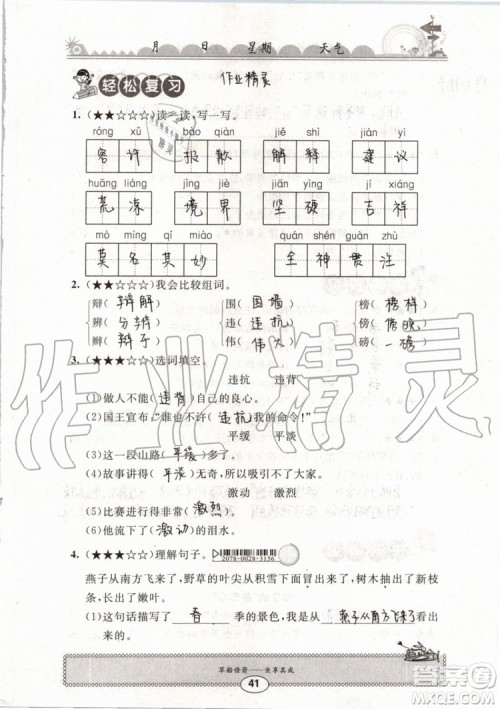 月 日 星期 天气
轻松复习 作业精灵
1. (★★☆☆☆)读一读,写一写。
róng xǔ bào qiàn jiě shì jiàn yì
容许 报歉 解释 建议
huāng liáng jìng jiè jiān yìng jí xiáng
荒凉 境界 坚硬 吉祥
mò míng qí miào quán shén guàn zhù
莫名其妙 全神贯注
2. (★★☆☆☆)我会比较组词。
辩(辩解) 围(围墙) 榜(榜样)
辨(分辨) 违(违抗) 傍(傍晚)
辫(辫子) 伟(伟大) 磅(一磅)
3. (★★★☆☆)选词填空。
违抗 违背
(1)做人不能(违背)自己的良心。
(2)国王宣布:“谁也不许(违抗)我的命令!”
平缓 平淡
(3)这一段山路(平缓)多了。
(4)故事讲得(平淡)无奇,所以吸引不了大家。
激动 激烈
(5)比赛进行得非常(激烈)。
(6)他流下了(激动)的泪水。
4. (★★★☆☆)理解句子。
2078-0028-3156
燕子从南方飞来了,野草的叶尖从积雪中冒出来了,树木抽出了新枝
条,长出了嫩叶。
(1)这句话描写了 春 季的景色,我是从 燕子从南方飞来了
草船借箭——坐享其成
41
作业精灵